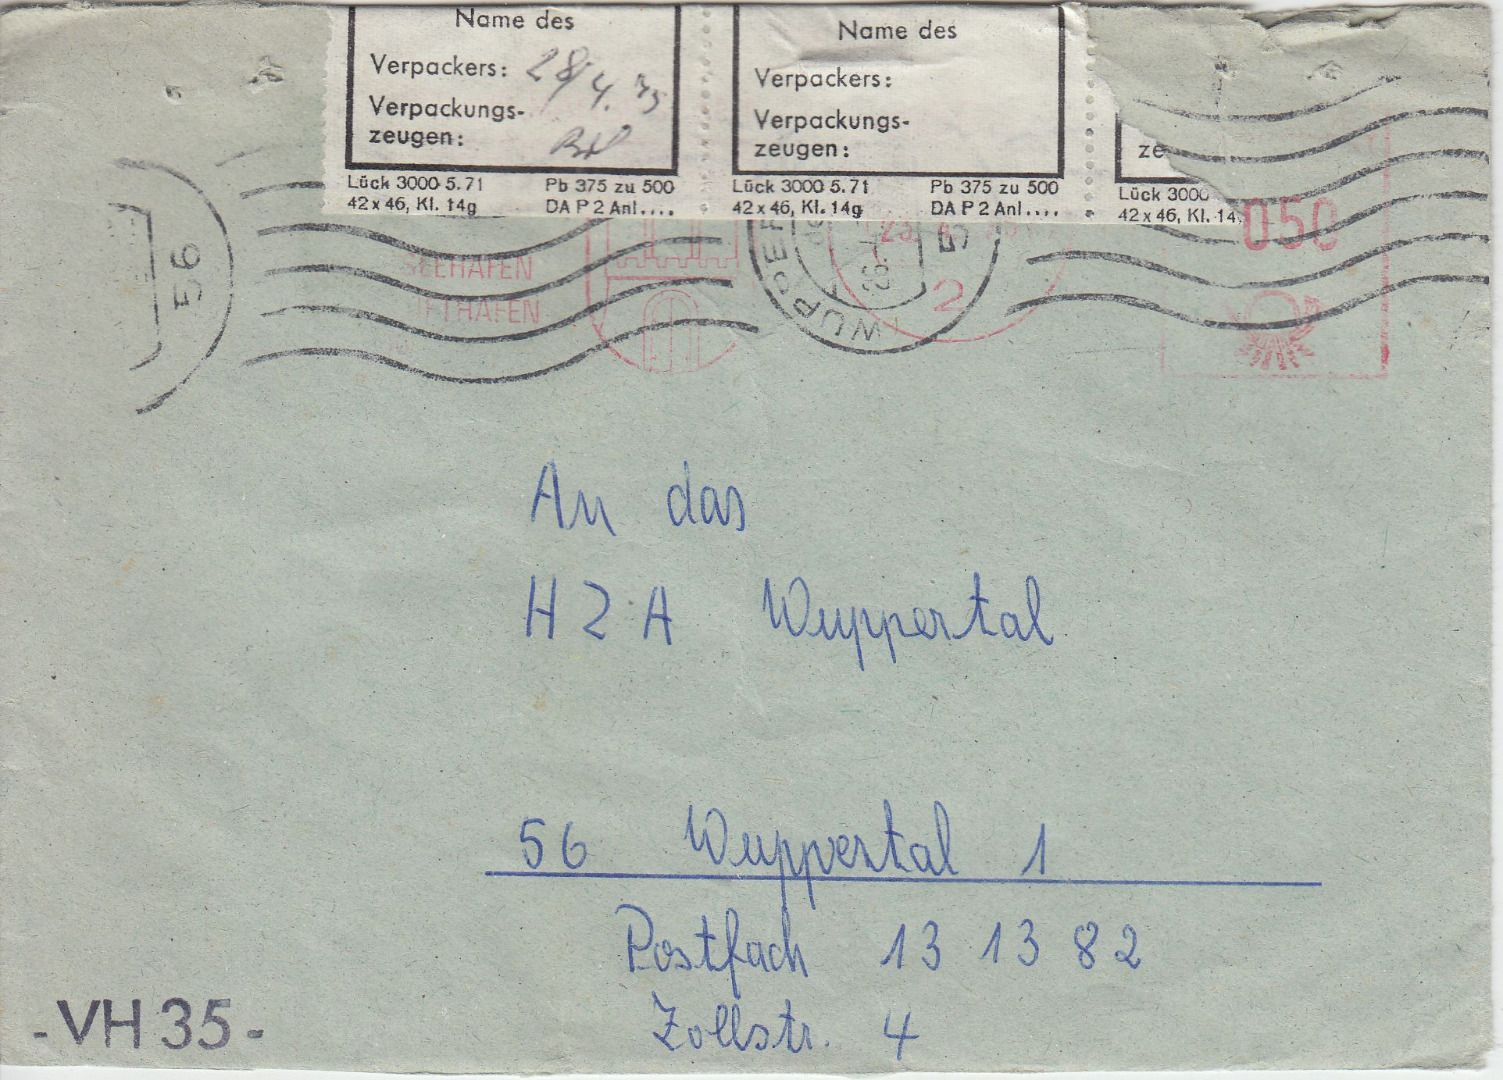 Name des
Verpackers: 28/4.75
Verpackungs-
zeugen:
Lück 3000 5.71 Pb 375 zu 500
42 x 46, Kl. 14g DA P 2 Anl....
Name des
Verpackers:
Verpackungs-
zeugen:
Lück 3000 5.71 Pb 375 zu 500
42 x 46, Kl. 14g DA P 2 Anl....
ze
Lück 3000
42 x 46, Kl. 14
56
SEEHAFEN
FTHAFEN
WUPPER
2
050
An das
HZA Wuppertal
56 Wuppertal 1
Postfach 13 13 82
Zollstr. 4
- VH 35 -